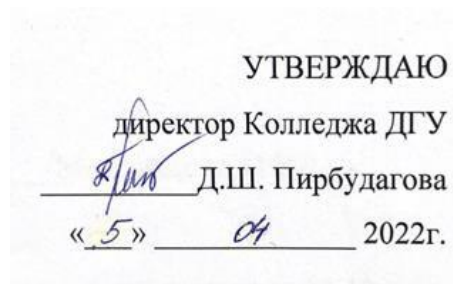 УТВЕРЖДАЮ
директор Колледжа ДГУ
Д.Ш. Пирбудагова
«5» 04 2022г.